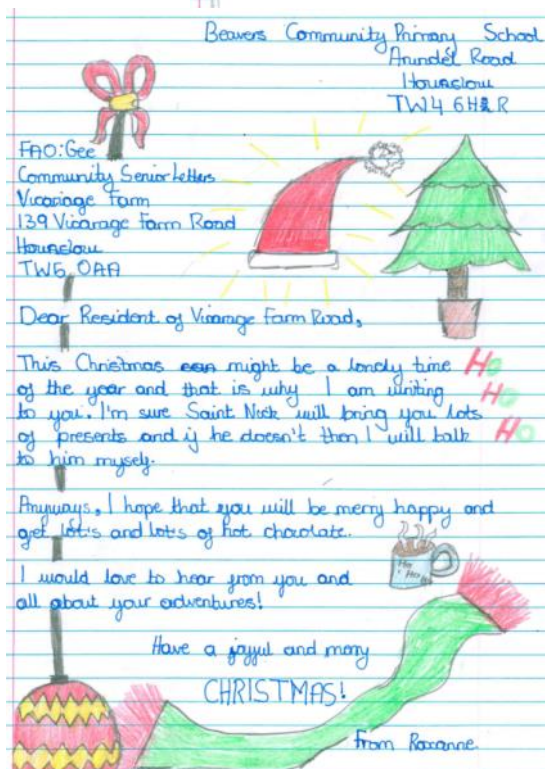 Beavers Community Primary School
Arundel Road
Hounslow
TW4 6HR
FAO: Gee
Community Senior Letters
Vicarage Farm
139 Vicarage Farm Road
Hounslow
TW5 0AA
Dear Resident of Vicarage Farm Road,
This Christmas might be a lonely time HO
of the year and that is why I am writing HO
to you. I'm sure Saint Nick will bring you lots
of presents and if he doesn't then I will talk HO
to him myself.
Anyways, I hope that you will be merry happy and
get lot's and lots of hot chocolate.
Ho
Ho Ho
I would love to hear from you and
all about your adventures!
Have a joyful and merry
CHRISTMAS!
From Roxanne